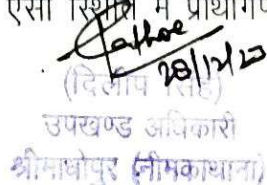 ऐसी स्थिति में
28/12/23
(दिलीप सिंह)
उपखण्ड अधिकारी
श्रीमाधोपुर (नीमकाथाना)